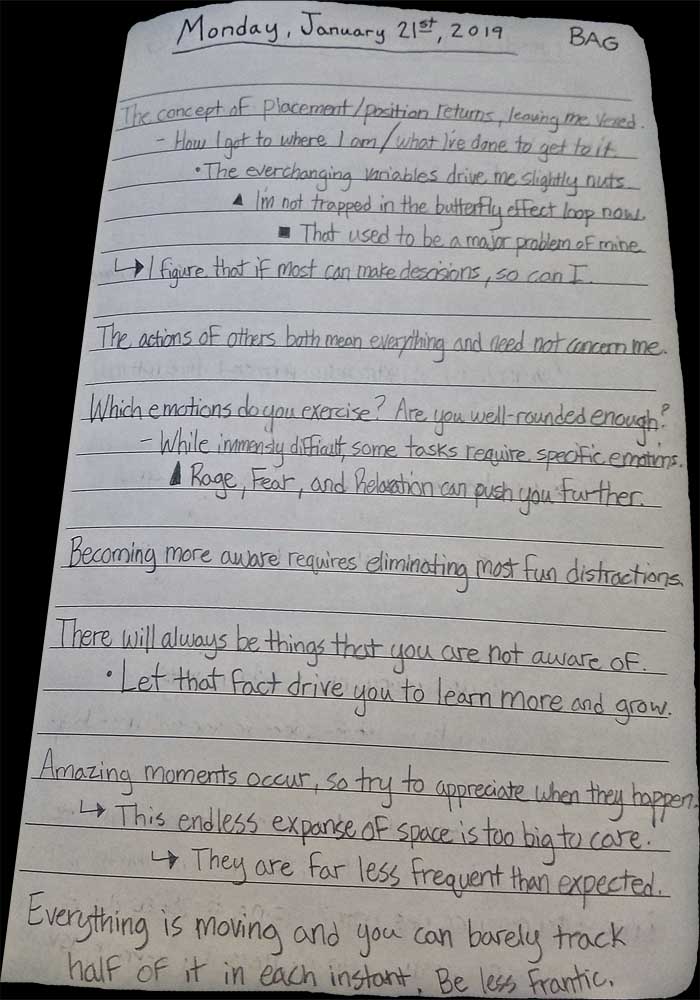 Monday, January 21st, 2019 BAG
The concept of placement/position returns, leaving me vexed.
- How I got to where I am/what I've done to get to it.
• The everchanging variables drive me slightly nuts
▲ I'm not trapped in the butterfly effect loop now.
■ That used to be a major problem of mine
↳ I figure that if most can make descisions, so can I.
The actions of others both mean everything and need not concern me.
Which emotions do you exercise? Are you well-rounded enough?
- While immensly difficult, some tasks require specific emotions.
▲ Rage, Fear, and Relaxation can push you further.
Becoming more aware requires eliminating most fun distractions.
There will always be things that you are not aware of.
• Let that fact drive you to learn more and grow.
Amazing moments occur, so try to appreciate when they happen.
↳ This endless expanse of space is too big to care.
↳ They are far less frequent than expected.
Everything is moving and you can barely track
half of it in each instant. Be less frantic.